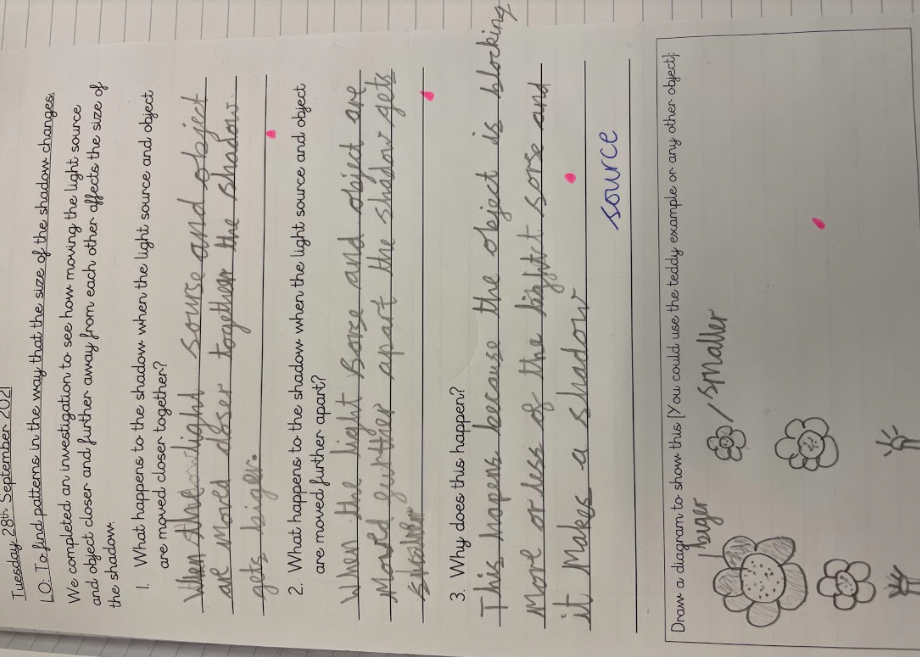 Tuesday 28th September 2021
L.O: To find patterns in the way that the size of the shadow changes.
We completed an investigation to see how moving the light source
and object closer and further away from each other affects the size of
the shadow.
1. What happens to the shadow when the light source and object
are moved closer together?
When the light sourse and object
are moved closer together the shadow
gets biger.
2. What happens to the shadow when the light source and object
are moved further apart?
When the light sorse and object are
moved further apart the shadow gets
smaller
3. Why does this happen?
This hapens because the object is blocking
more or less of the light sorse and
it makes a shadow
source
Draw a diagram to show this (You could use the teddy example or any other object).
biger
smaller